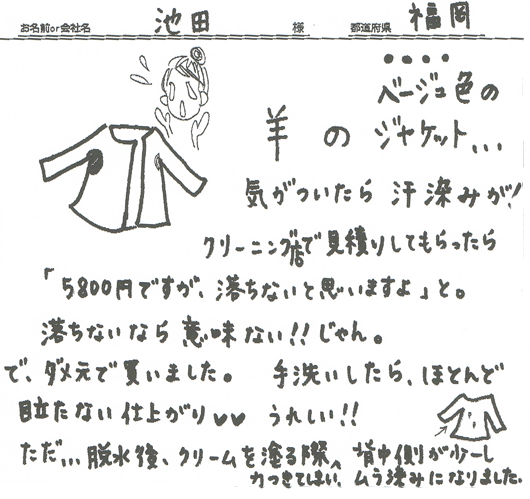 お名前or会社名 池田 様 都道府県 福岡
ベージュ色の
羊のジャケット...
気がついたら汗染みが!
クリーニング店で見積りしてもらったら
「5800円ですが、落ちないと思いますよ」と。
落ちないなら意味ない!!じゃん。
で、ダメ元で買いました。 手洗いしたら、ほとんど
目立たない仕上がり♥♥ うれしい!!
ただ...脱水後、クリームを塗る際、背中側が少し
力つきてしまい、ムラ染みになりました。